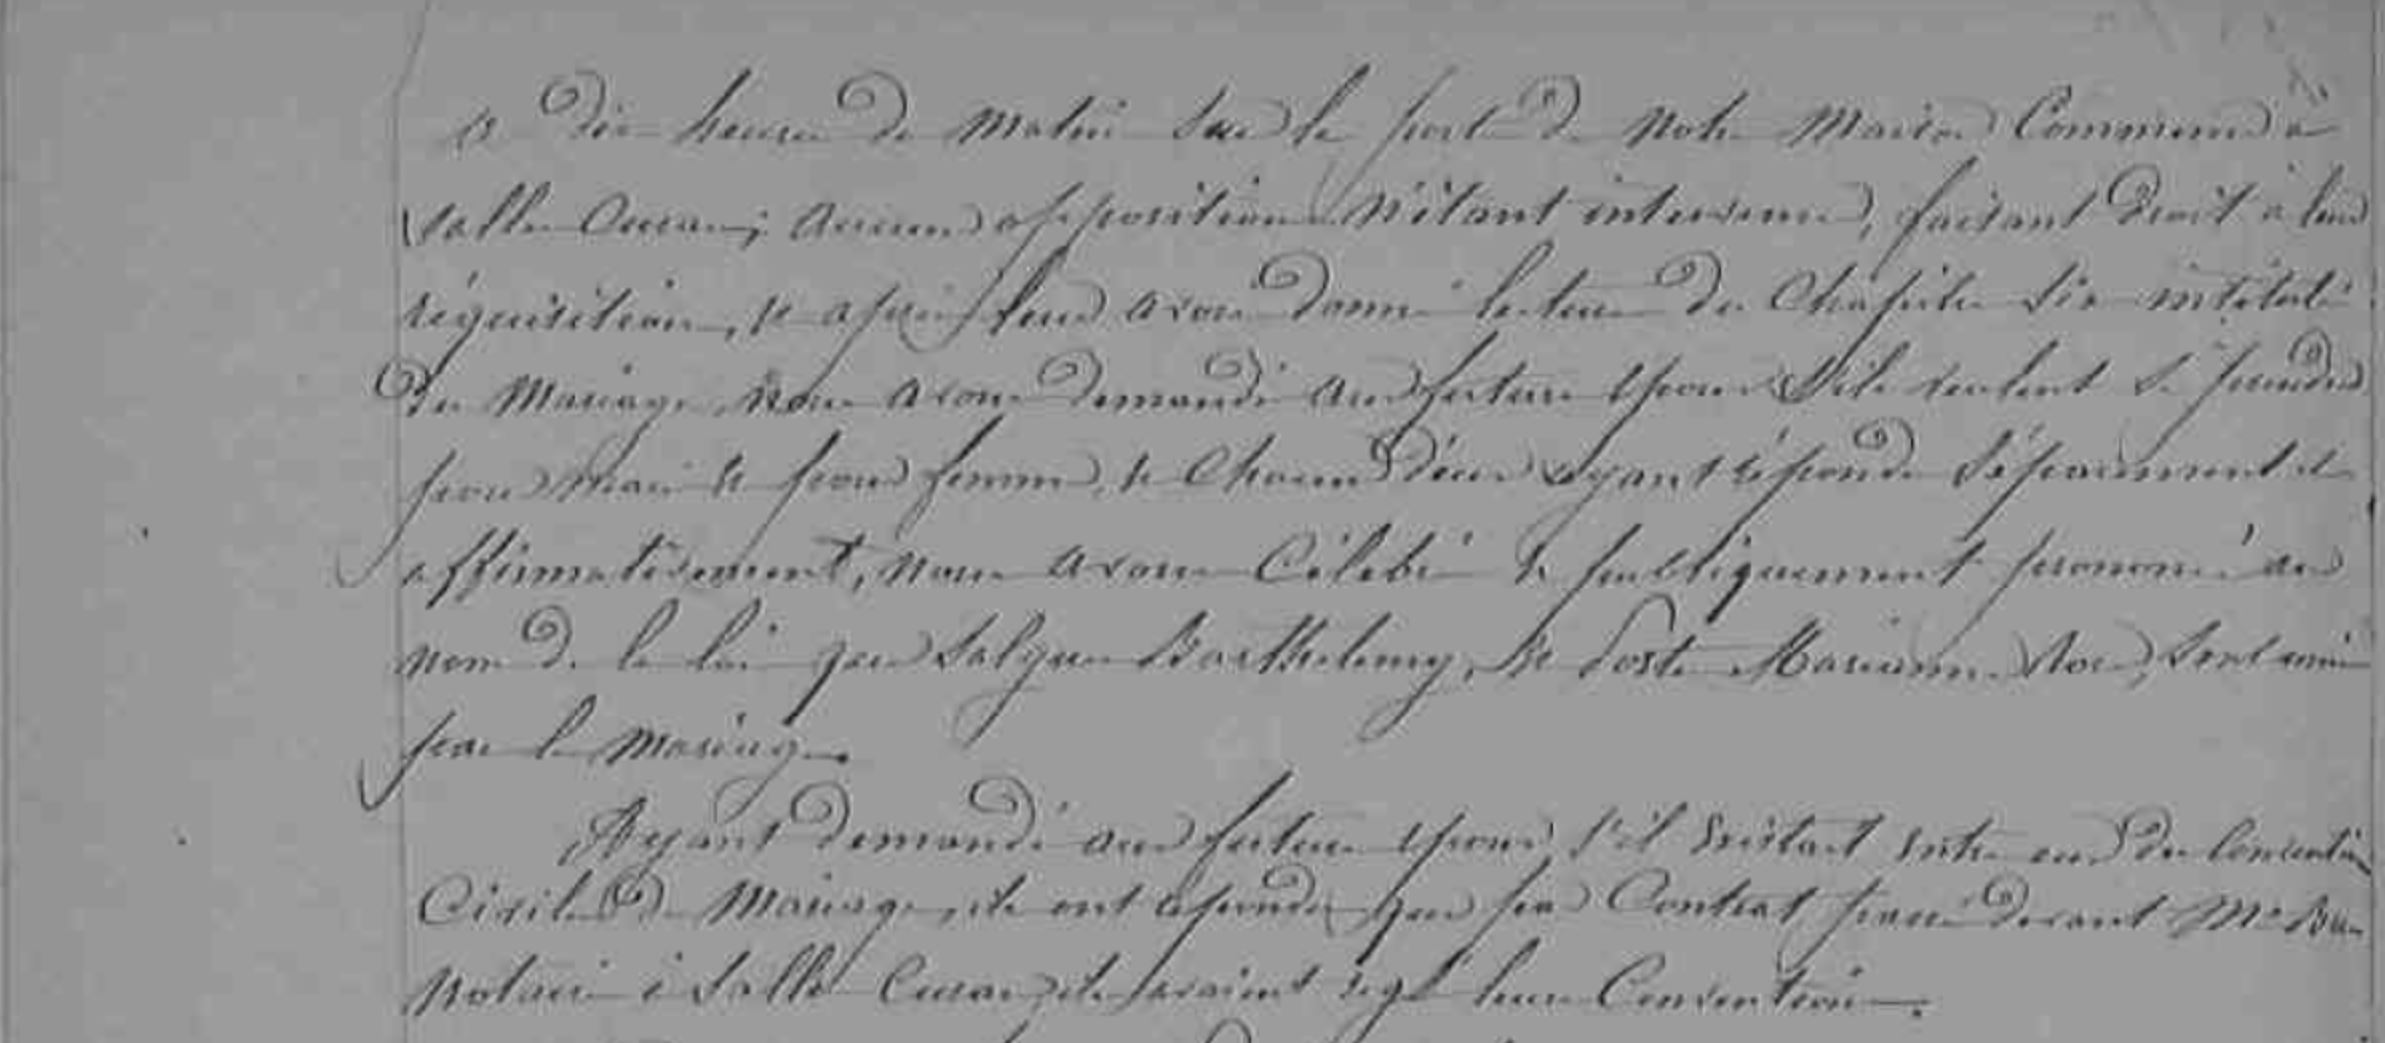 à dix heures du matin sur la porte de notre Maison Commune à
Salles Curan; aucune opposition n'étant intervenue, faisant droit à leur
réquisition, et après leur avoir donné lecture du Chapitre six intitulé
du Mariage, nous avons demandé aux futurs époux s'ils veulent se prendre
pour mari et pour femme, et chacun d'eux ayant répondu séparément et
affirmativement, nous avons célébré et publiquement prononcé au
nom de la loi que Salgues Barthelemy, et Marianne sont unis
par le Mariage.
Ayant demandé aux futurs époux s'il existait entre eux des conventions
Civiles de Mariage, ils ont répondu que par Contrat passé devant Me
Notaire à Salles Curan, ils avaient réglé leurs Conventions.